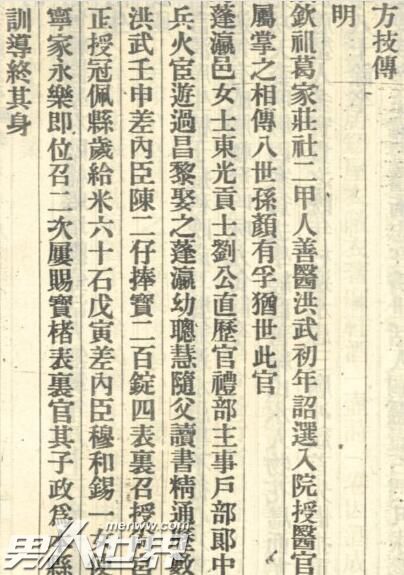 方技傳
明
欽祖葛家莊社二甲人善醫洪武初年詔選入院授醫官
屬掌之相傳八世孫顏有孚猶世此官
蓬瀛邑女士東光貢士劉公直歷官禮部主事戶部郎中
兵火宦遊過昌黎娶之蓬瀛幼聰慧隨父讀書精通
數
洪武壬申差內臣陳二仔捧寶二百錠四表裏召授
正授冠佩縣歲給米六十石戊寅差內臣穆和錫一
寧家永樂即位召二次屢賜寶楮表裏官其子政為
縣
訓導終其身
男人世界
menww.com